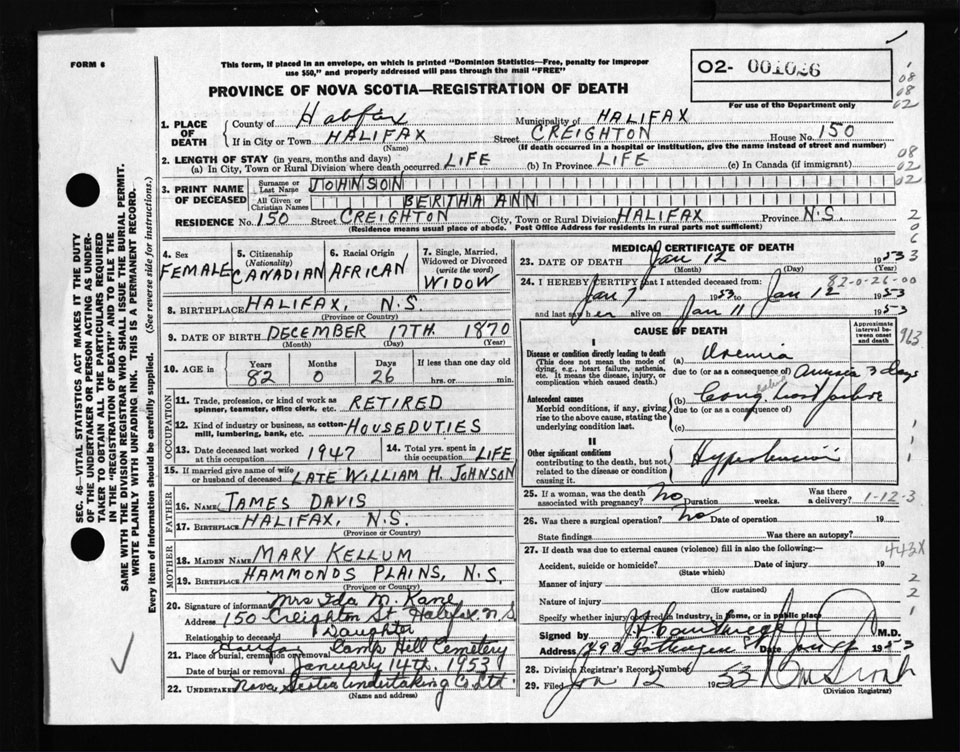 FORM 6
This form, if placed in an envelope, on which is printed "Dominion Statistics—Free, penalty for improper
use $50," and properly addressed will pass through the mail "FREE"
O2- 001026
PROVINCE OF NOVA SCOTIA—REGISTRATION OF DEATH
For use of the Department only
1. PLACE OF DEATH
County of Halifax Municipality of HALIFAX
If in City or Town HALIFAX Street CREIGHTON House No. 150
(Name) (If death occurred in a hospital or institution, give the name instead of street and number)
2. LENGTH OF STAY (in years, months and days)
(a) In City, Town or Rural Division where death occurred LIFE (b) In Province LIFE (c) In Canada (if immigrant)
3. PRINT NAME OF DECEASED
Surname or Last Name JOHNSON
All Given or Christian Names BERTHA ANN
RESIDENCE No. 150 Street CREIGHTON City, Town or Rural Division HALIFAX Province N.S.
(Residence means usual place of abode. Post Office Address for residents in rural parts not sufficient)
SEC. 46—VITAL STATISTICS ACT MAKES IT THE DUTY
OF THE UNDERTAKER OR PERSON ACTING AS UNDER-
TAKER TO OBTAIN ALL THE PARTICULARS REQUIRED
IN THE "REGISTRATION OF DEATH" AND TO FILE THE
SAME WITH THE DIVISION REGISTRAR WHO SHALL ISSUE THE BURIAL PERMIT.
WRITE PLAINLY WITH UNFADING INK. THIS IS A PERMANENT RECORD.
Every item of information should be carefully supplied. (See reverse side for instructions.)
4. Sex FEMALE
5. Citizenship (Nationality) CANADIAN
6. Racial Origin AFRICAN
7. Single, Married, Widowed or Divorced (write the word) WIDOW
8. BIRTHPLACE HALIFAX, N.S.
(Province or Country)
9. DATE OF BIRTH DECEMBER 17TH. 1870
(Month) (Day) (Year)
10. AGE IN Years 82 Months 0 Days 26 If less than one day old hrs. or min.
OCCUPATION
11. Trade, profession, or kind of work as spinner, teamster, office clerk, etc. RETIRED
12. Kind of industry or business, as cotton-mill, lumbering, bank, etc. HOUSEDUTIES
13. Date deceased last worked at this occupation 1947
14. Total yrs. spent in this occupation LIFE
15. If married give name of wife or husband of deceased LATE WILLIAM H. JOHNSON
FATHER
16. NAME JAMES DAVIS
17. BIRTHPLACE HALIFAX, N.S.
(Province or Country)
MOTHER
18. MAIDEN NAME MARY KELLUM
19. BIRTHPLACE HAMMONDS PLAINS, N.S.
(Province or Country)
20. Signature of informant Mrs Ida M. Kane
Address 150 Creighton St Halifax N.S
Relationship to deceased Daughter
21. Place of burial, cremation or removal Halifax Camp Hill Cemetery
Date of burial or removal January 14th. 1953
22. UNDERTAKER Nova Scotia Undertaking Co Ltd.
(Name and address)
MEDICAL CERTIFICATE OF DEATH
23. DATE OF DEATH Jan 12 1953
(Month) (Day) (Year)
82-0-26-00
24. I HEREBY CERTIFY that I attended deceased from:
Jan 7 1953 to Jan 12 1953
and last saw her alive on Jan 11 1953
CAUSE OF DEATH
Approximate interval between onset and death
I
Disease or condition directly leading to death
(This does not mean the mode of dying, e.g., heart failure, asthenia, etc. It means the disease, injury, or complication which caused death.)
(a) Uremia
due to (or as a consequence of) 3 days
Antecedent causes
Morbid conditions, if any, giving rise to the above cause, stating the underlying condition last.
(b) Cong. heart failure
due to (or as a consequence of)
(c)
II
Other significant conditions
contributing to the death, but not related to the disease or condition causing it.
Hypertension
25. If a woman, was the death associated with pregnancy? No Duration weeks. Was there a delivery? 1-12-3
26. Was there a surgical operation? No Date of operation 19
State findings Was there an autopsy?
27. If death was due to external causes (violence) fill in also the following:—
443X
Accident, suicide or homicide? Date of injury 19
(State which)
Manner of injury
(How sustained)
Nature of injury
Specify whether injury occurred in industry, in home, or in public place
Signed by M.D.
Address Date 1953
28. Division Registrar's Record Number
29. Filed Jan 12 1953
(Division Registrar)